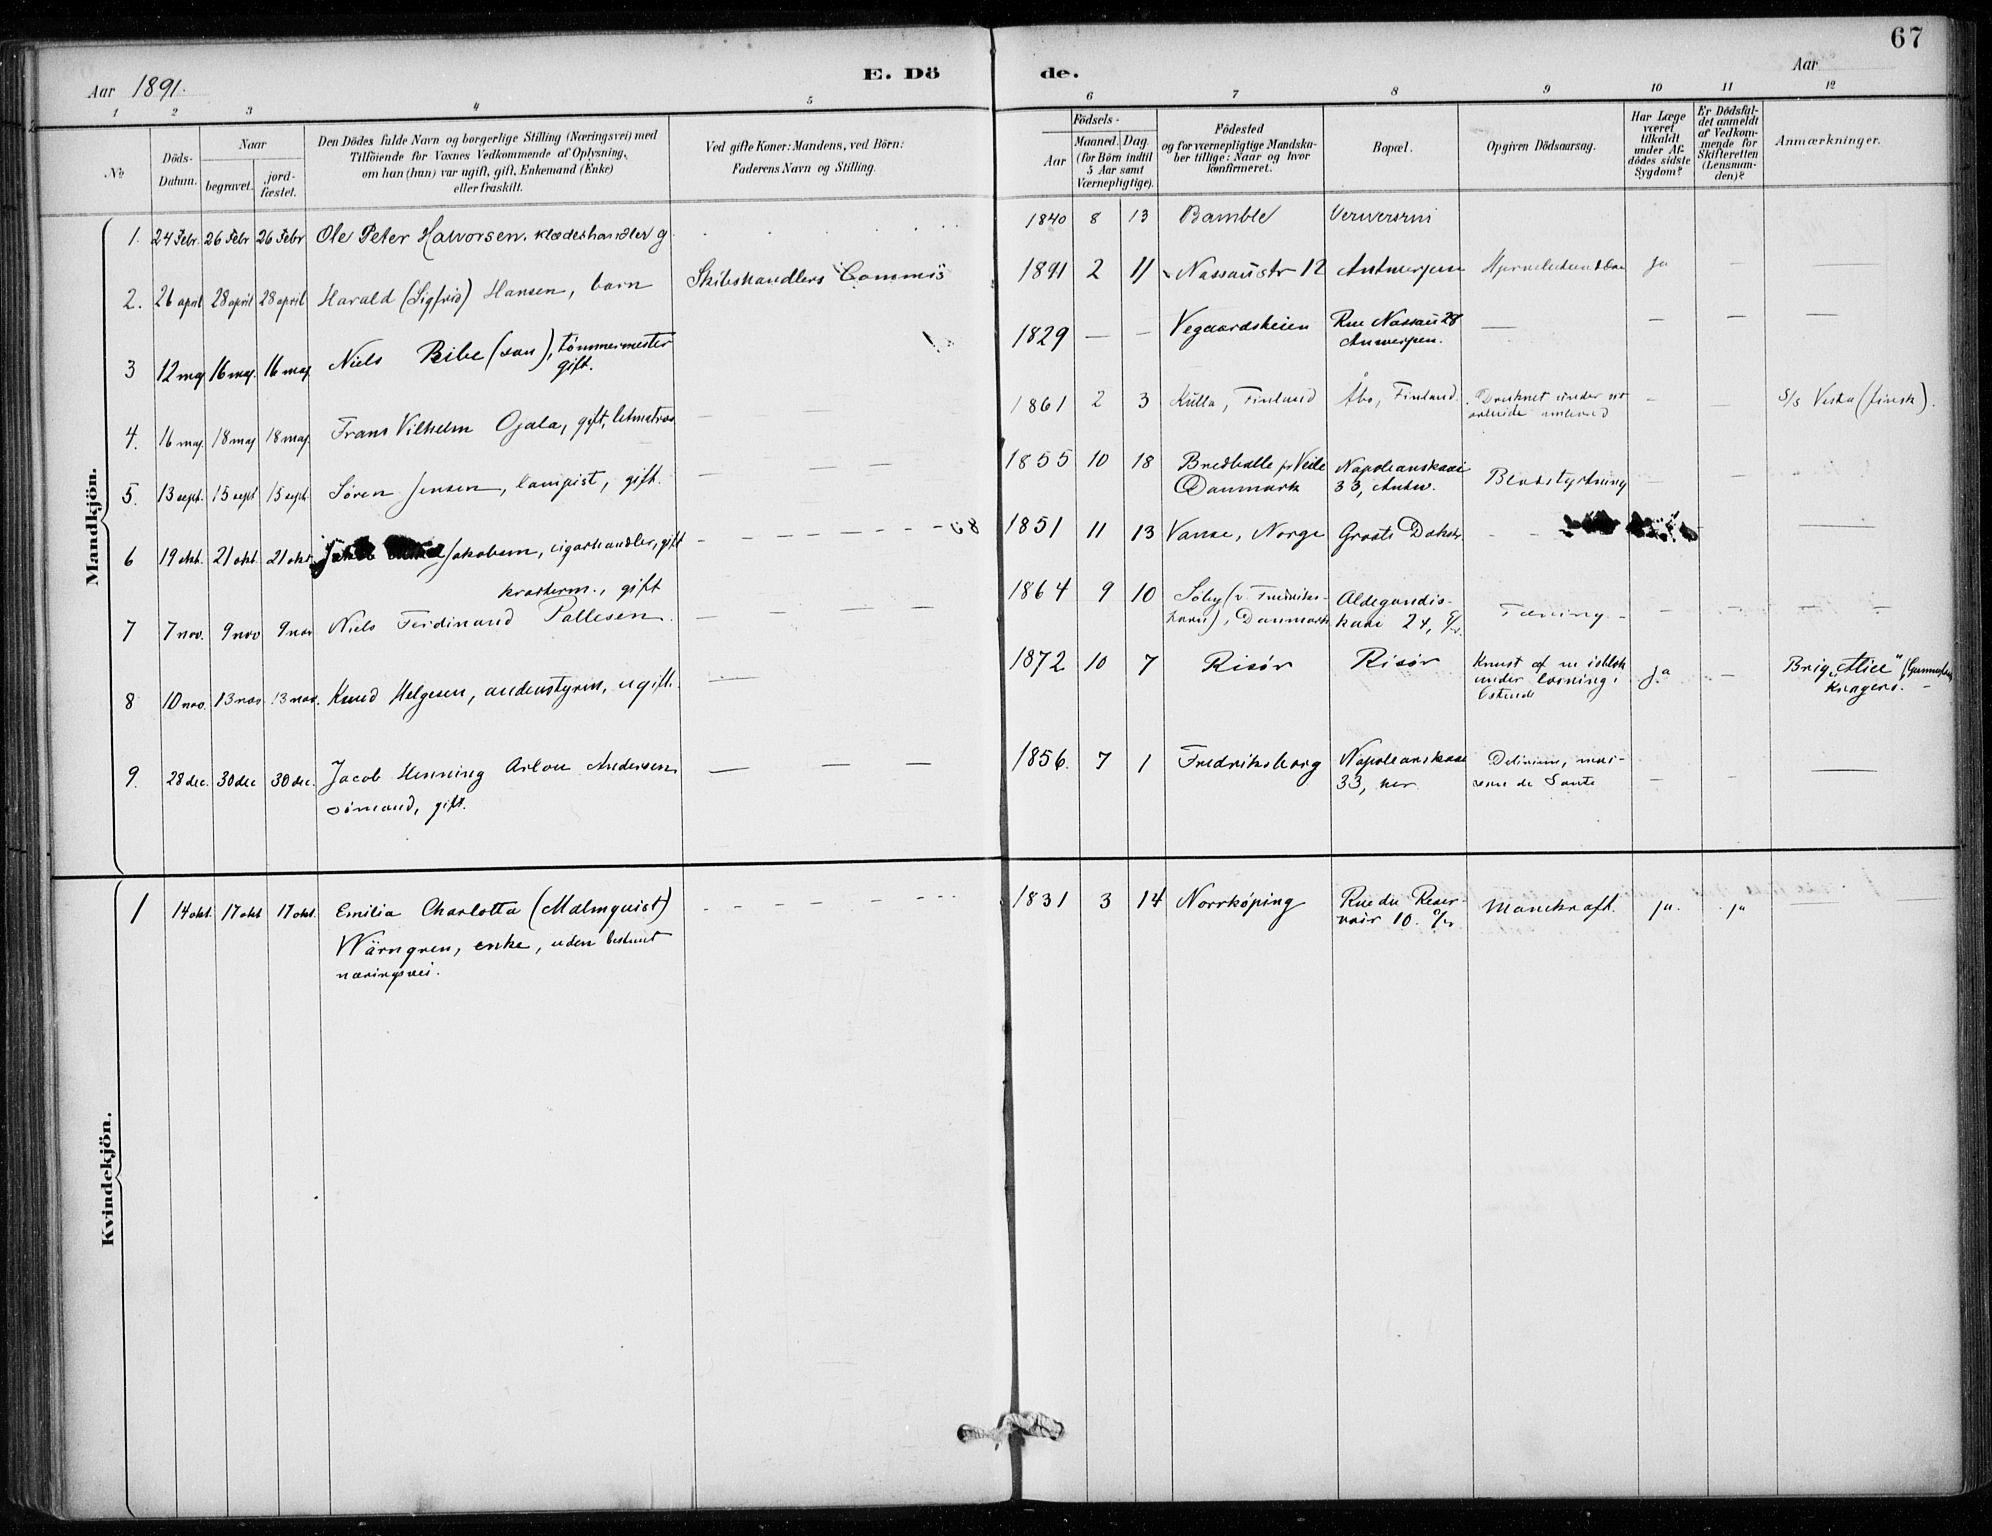 67
Aar 1891.
E. Dö de.
Aar
1 2 3 4 5 6 7 8 9 10 11 12
№
Döds-Datum.
Naar
begravet.
jord-fæstet.
Den Dödes fulde Navn og borgerlige Stilling (Næringsvei) med
Tilföiende for Voxnes Vedkommende af Oplysning,
om han (hun) var ugift, gift, Enkemand (Enke)
eller fraskilt.
Ved gifte Koner: Mandens, ved Börn:
Faderens Navn og Stilling.
Födsels-
Aar
Maaned. Dag
(for Börn indtil
5 Aar samt
Værnepligtige).
Födested
og for værnepligtige Mandska-
ber tillige: Naar og hvor
konfirmeret.
Bopæl.
Opgiven Dödsaarsag.
Har Læge
været
tilkaldt
under Af-
dödes sidste
Sygdom?
Er Dödsfal-
det anmeldt
af Vedkom-
mende for
Skifteretten
(Lensman-
den)?
Anmærkninger.
Mandkjön.
1. 24 Febr. 26 Febr 26 Febr Ole Peter Halvorsen. klædeshandler g. 1840 8 13 Bamble
2. 26 april 28 april 28 april Harald (Sigfrid) Hansen, barn Skibshandlers Commis 1891 2 11 Nassaustr 12 Antwerpen ja —
3 12 maj 16 maj. 16 maj. Niels Ribe (san), tømmermester
gift.
1829 — — Vegaardsheien Rue Nassau 28
Antwerpen. — — —
4. 16 maj 18 maj 18 maj. Frans Vilhelm Ojala, gift, — 1861 2 3 Kulla, Finland Åbo, Finland. Druknet under
arbeide — — S/S Vesta (finsk).
5. 13 sept. 15 sept 15 sept. Søren Jensen, lampist, gift. — — — 1855 10 18 Bredballe pr Veile
Danmark
Napoleonskaai
33, Antw.
Blodstyrtning —
6 19 okt. 21 okt. 21 okt. Jakobsen, cigarhandler, gift 1851 11 13 Vanse, Norge
7 7 nov. 9 nov 9 nov gift
Niels Ferdinand Pallesen. — — — 1864 9 10 Søby (v. Fredriks-
havn), Danmark
Aldegondis-
kaai
Tæring — — —
8 10 nov. 13 nov 13 nov. Knud Helgesen, andenstyrm, ugift. — 1872 10 7 Risør Risør Knust af en isblok
under losning i
Ostende
ja — Brig „Alice"
Kragerø. —
9. 28 dec. 30 dec 30 dec. Jacob Henning Anton Andersen
sømand, gift.
— — — 1856. 7 1 Fredriksborg Napoleonskaai
33, her
Delirium, mai-
son de Santé — — —
Kvindekjön.
1 14 okt. 17 okt 17 okt. Emilia Charlotta (Malmquist)
Wärngren, enke, uden bestemt
næringsvei.
1831 3 14 Norrköping Rue du Réser-
voir 10. Marekraft. ja. ja